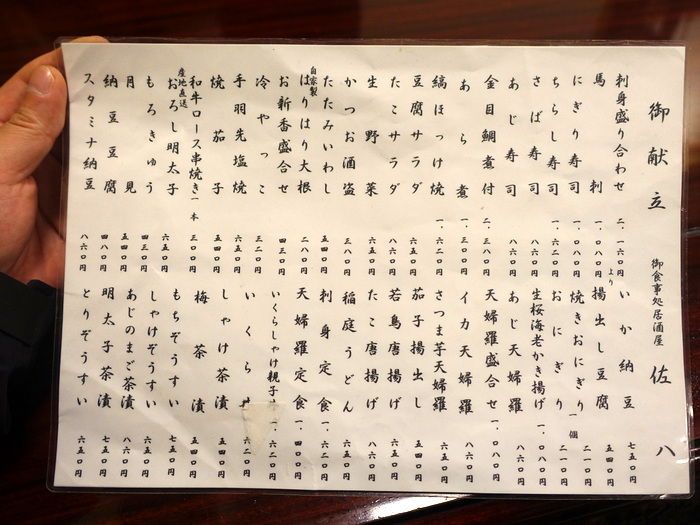 御献立 御食事処居酒屋 佐八
刺身盛り合わせ 二、一六〇円より
馬刺 一、〇八〇円
にぎり寿司 一、〇八〇円
ちらし寿司 一、六二〇円
さば寿司 八六〇円
あじ寿司 八六〇円
金目鯛煮付 二、三八〇円
あら煮 一、三〇〇円
縞ほっけ焼 一、六二〇円
豆腐サラダ 六五〇円
たこサラダ 八六〇円
生野菜 六五〇円
かつお酒盗 三八〇円
たたみいわし 五四〇円
自家製はりはり大根 二八〇円
お新香盛合せ 四三〇円
冷やっこ 三二〇円
手羽先塩焼 六五〇円
焼茄子 五四〇円
和牛ロース串焼き一本 三〇〇円
産地直送おろし明太子 六五〇円
もろきゅう 四三〇円
月見 五四〇円
納豆豆腐 四八〇円
スタミナ納豆 八六〇円
いか納豆 七五〇円
揚出し豆腐 五四〇円
焼きおにぎり一個 二一〇円
おにぎり 二一〇円
生桜海老かき揚げ 一、〇八〇円
あじ天婦羅 八六〇円
天婦羅盛合せ 一、〇八〇円
イカ天婦羅 八六〇円
さつま芋天婦羅 六五〇円
茄子揚出し 五四〇円
若鳥唐揚げ 八六〇円
たこ唐揚げ 八六〇円
稲庭うどん 六五〇円
刺身定食 一、六二〇円
天婦羅定食 一、四〇〇円
いくらしゃけ親子 一、六二〇円
いくら 六二〇円
しゃけ茶漬 五四〇円
梅茶漬 五四〇円
もちぞうすい 七五〇円
しゃけぞうすい 六五〇円
あじのまご茶漬 八六〇円
明太子茶漬 七五〇円
とりぞうすい 六五〇円